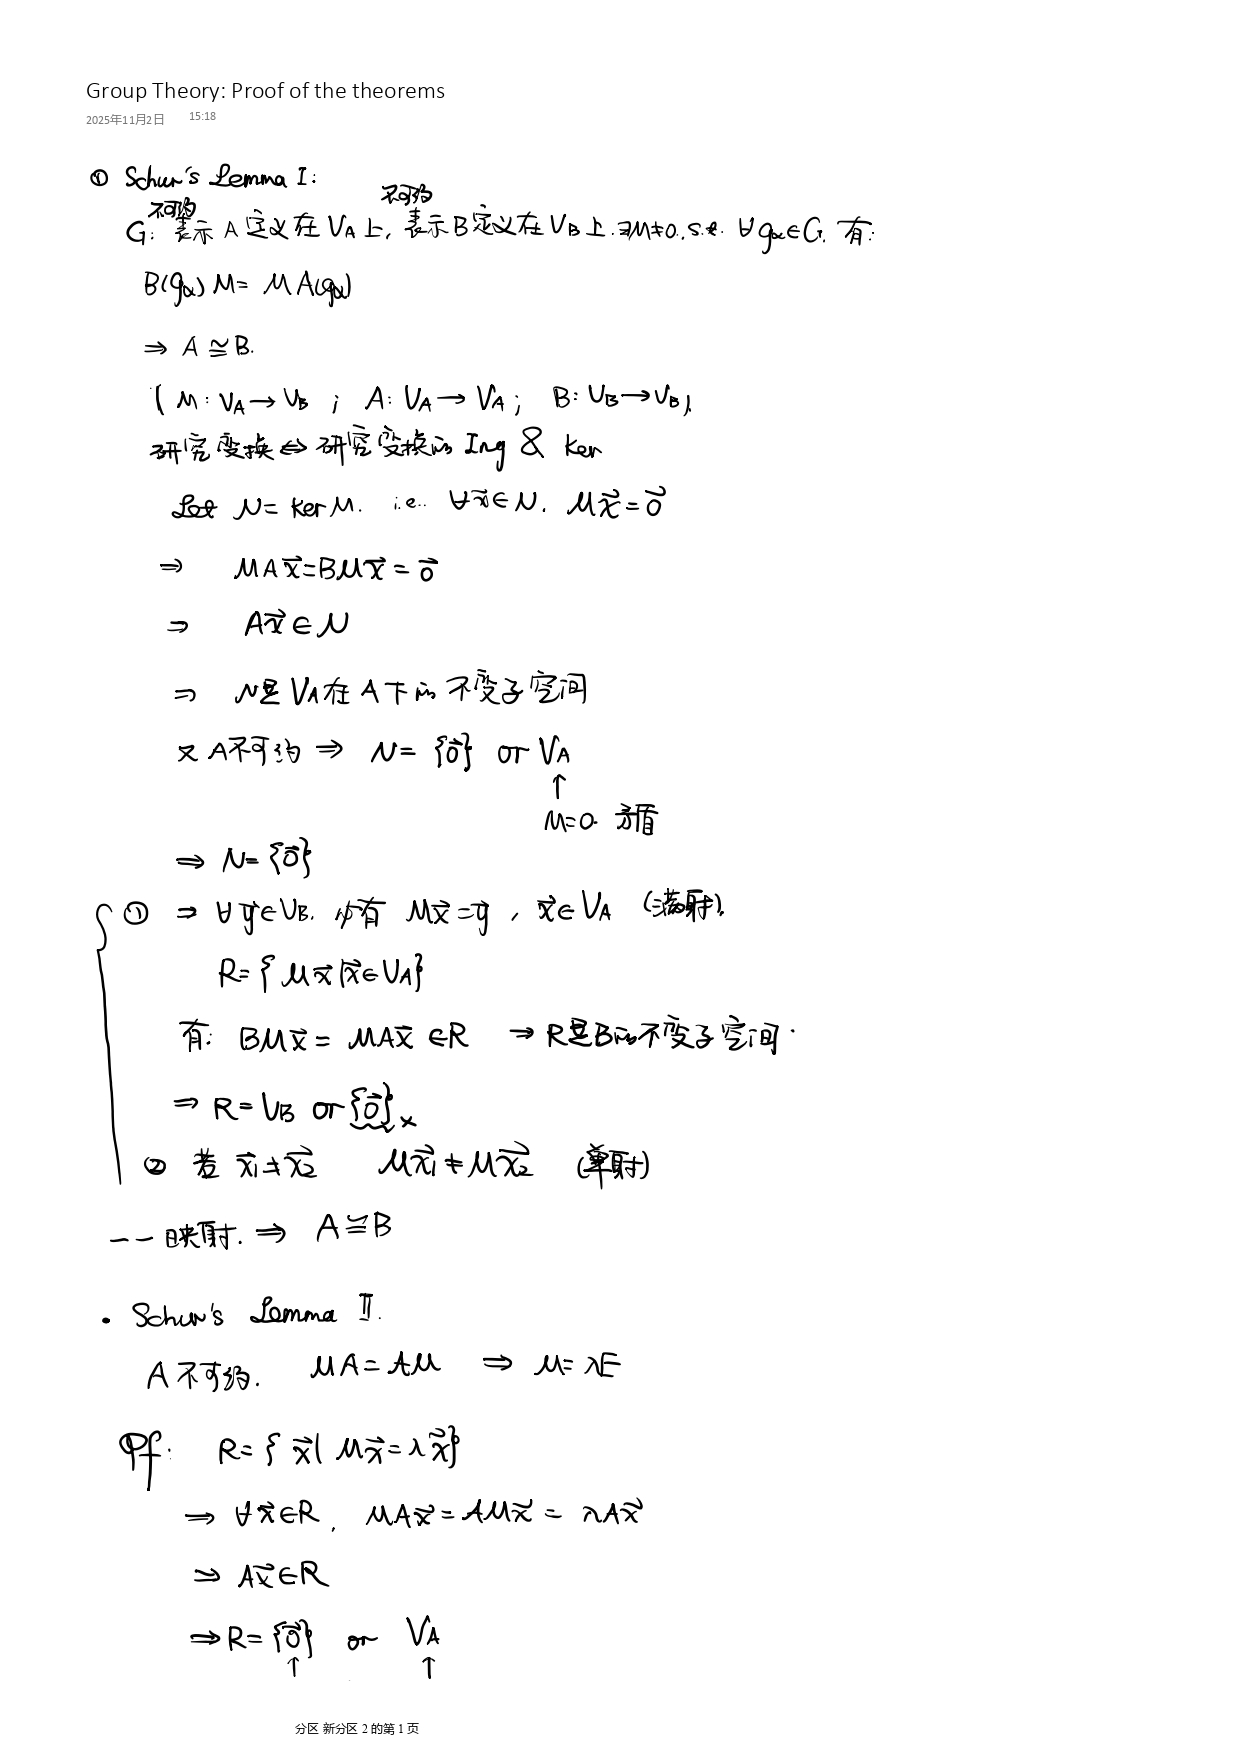 Group Theory: Proof of the theorems
2025年11月2日 15:18
① Schur's Lemma I:
G: 不可约表示 A 定义在 V_A 上, 不可约表示 B 定义在 V_B 上. ∃M≠0, s.t. ∀g_α∈G, 有:
B(g_α) M = M A(g_α)
⇒ A ≅ B.
( M: V_A → V_B ; A: V_A → V_A ; B: V_B → V_B ).
研究变换 ⇔ 研究变换的 Img & Ker
Let N = Ker M. i.e. ∀x⃗ ∈ N, Mx⃗ = 0⃗
⇒ MAx⃗ = BMx⃗ = 0⃗
⇒ Ax⃗ ∈ N
⇒ N是 V_A 在 A 下的不变子空间
又 A不可约 ⇒ N = {0⃗} or V_A
↑
M=0. 矛盾
⇒ N = {0⃗}
① ⇒ ∀y⃗∈V_B. 必有 Mx⃗ = y⃗, x⃗∈V_A (满射).
R = { Mx⃗ | x⃗∈V_A}
有: BMx⃗ = MAx⃗ ∈R ⇒ R是B的不变子空间.
⇒ R = V_B or {0⃗} ×
② 若 x⃗₁≠x⃗₂ Mx⃗₁ ≠ Mx⃗₂ (单射)
一一映射. ⇒ A ≅ B
• Schur's Lemma II.
A 不可约. MA = AM ⇒ M = λE
Pf: R = { x⃗ | Mx⃗ = λx⃗}
⇒ ∀x⃗∈R, MAx⃗ = AMx⃗ = λAx⃗
⇒ Ax⃗∈R
⇒ R = {0⃗} or V_A
↑ ↑
分区 新分区 2 的第 1 页